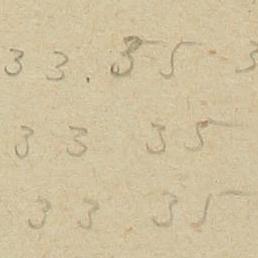 33. 35 3
33 35
33 35